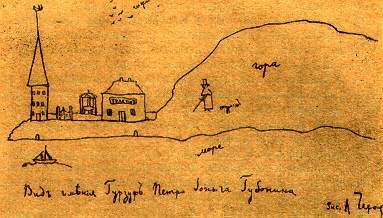 гора
море
Видъ имѣнiя Гурзуфъ Петра Iоныча Губонина
рис. А Чехов